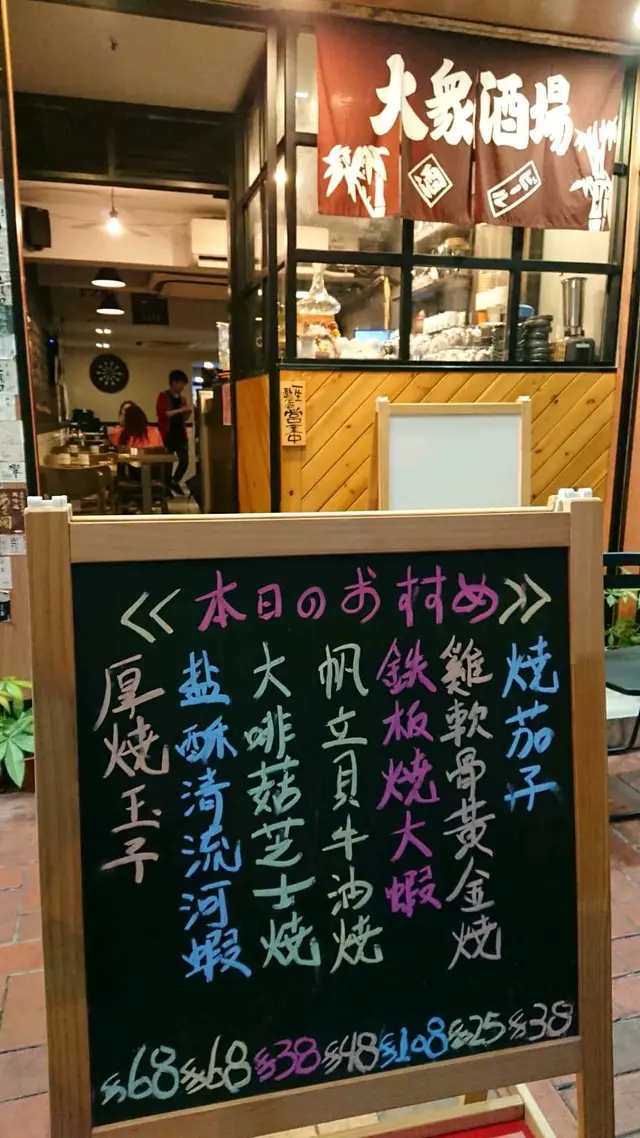 大衆酒場
酒
ビール
一生
懸命
営業中
<< 本日のおすすめ >>
焼茄子
雞軟骨黃金焼
鉄板焼大蝦
帆立貝牛油焼
大啡菇芝士焼
盐酥清流河蝦
厚焼玉子
$68 $68 $38 $48 $108 $25 $38